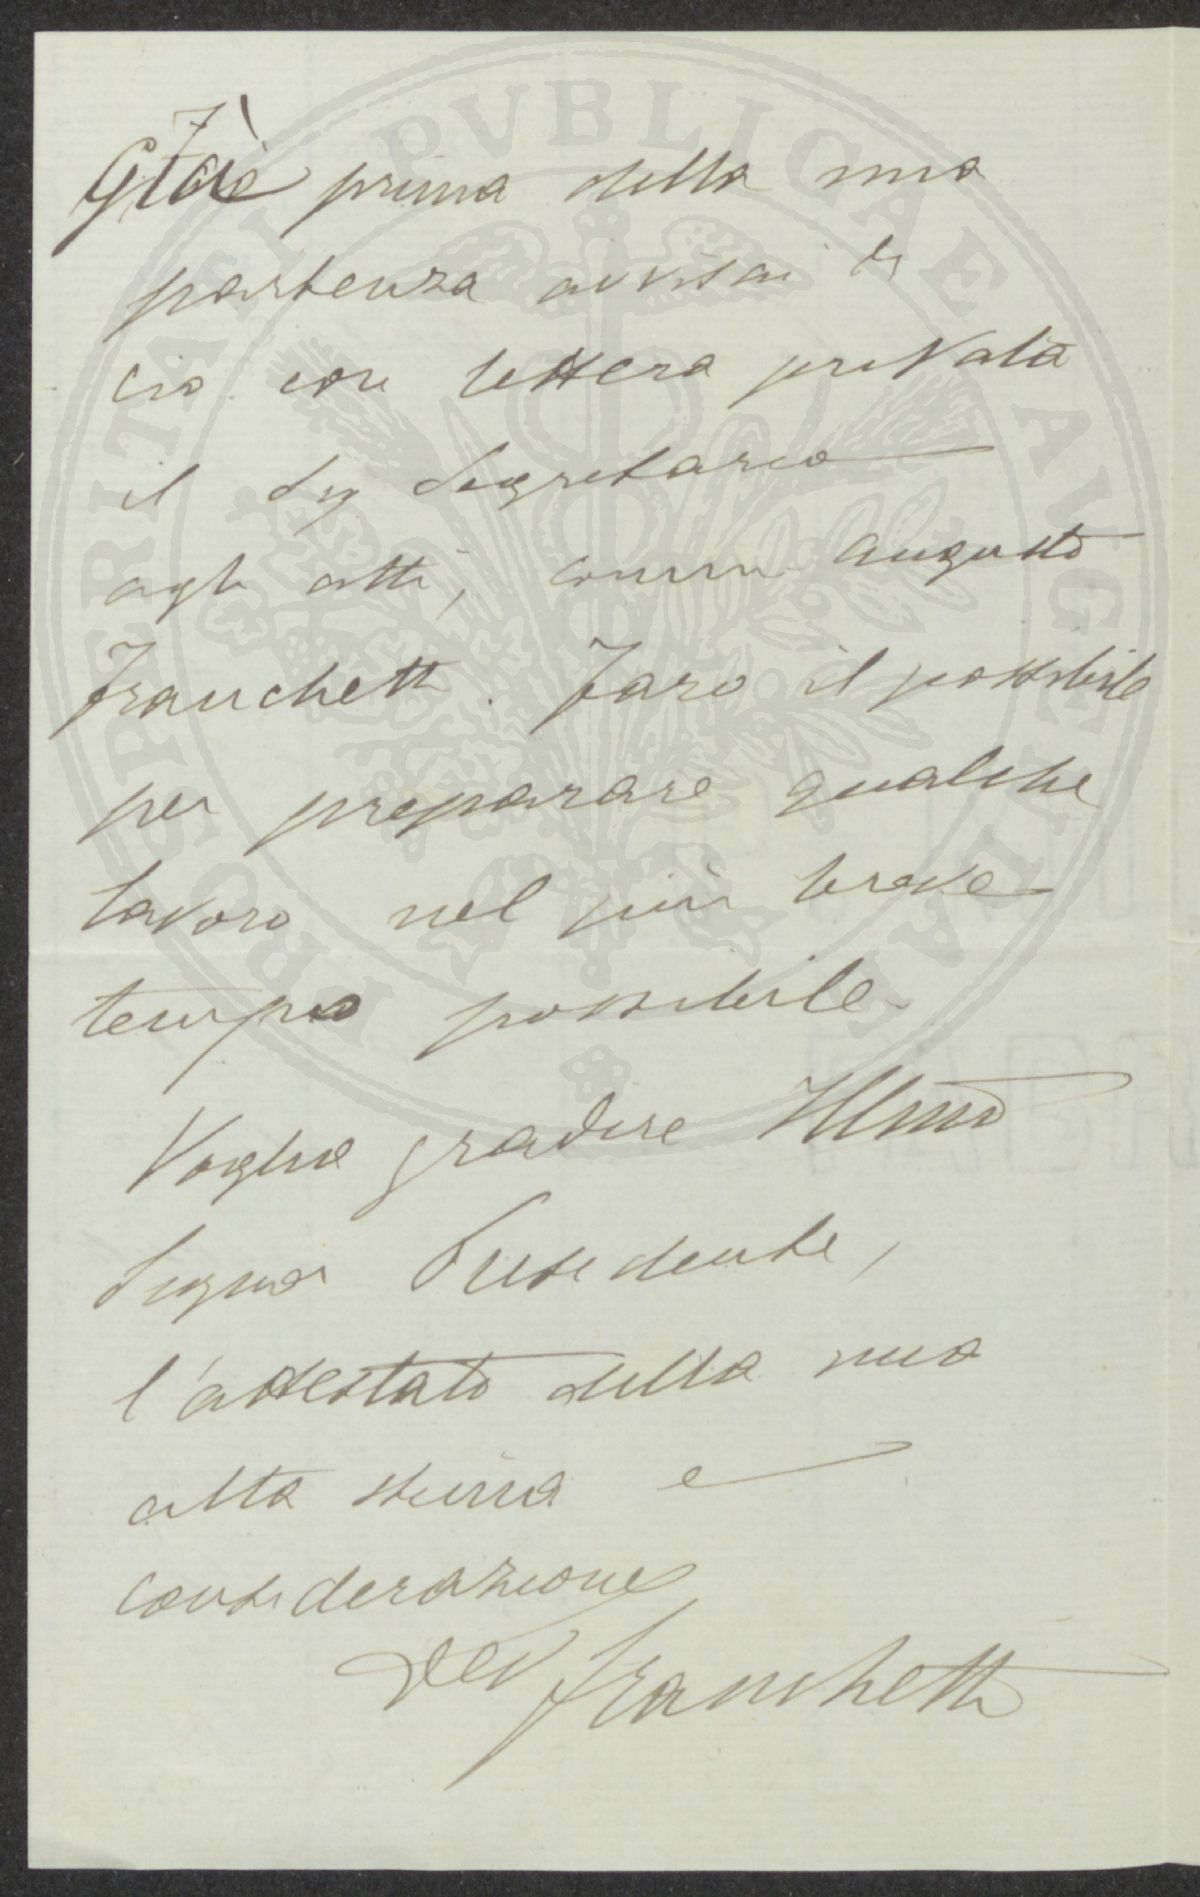 Già prima della mia
partenza avvisai di
ciò con lettera privata
il Sig Segretario
agli atti, comm Augusto
Franchetti. Farò il possibile
per preparare qualche
lavoro nel più breve
tempo possibile.
Voglia gradire Illmo
Signor Presidente,
l'attestato della mia
alta stima e
considerazione
Dev Franchetti
PROSPERITATI PVBLICAE AVGENDAE